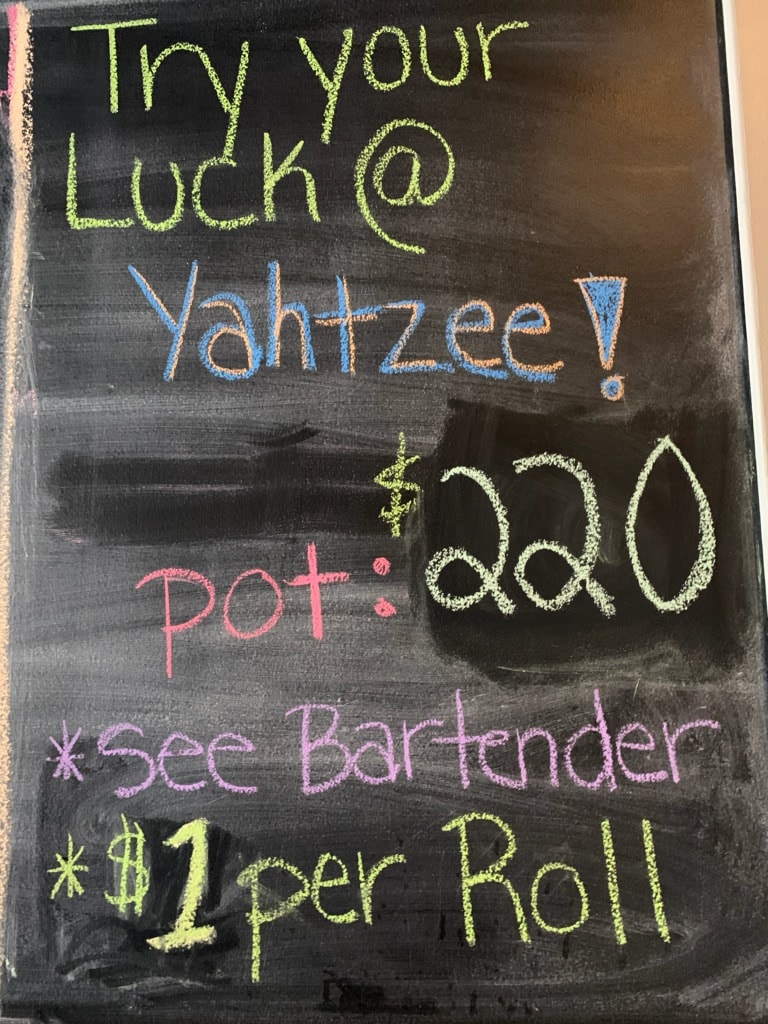 Try your
Luck @
Yahtzee!
pot: $220
*see Bartender
*$1 per Roll